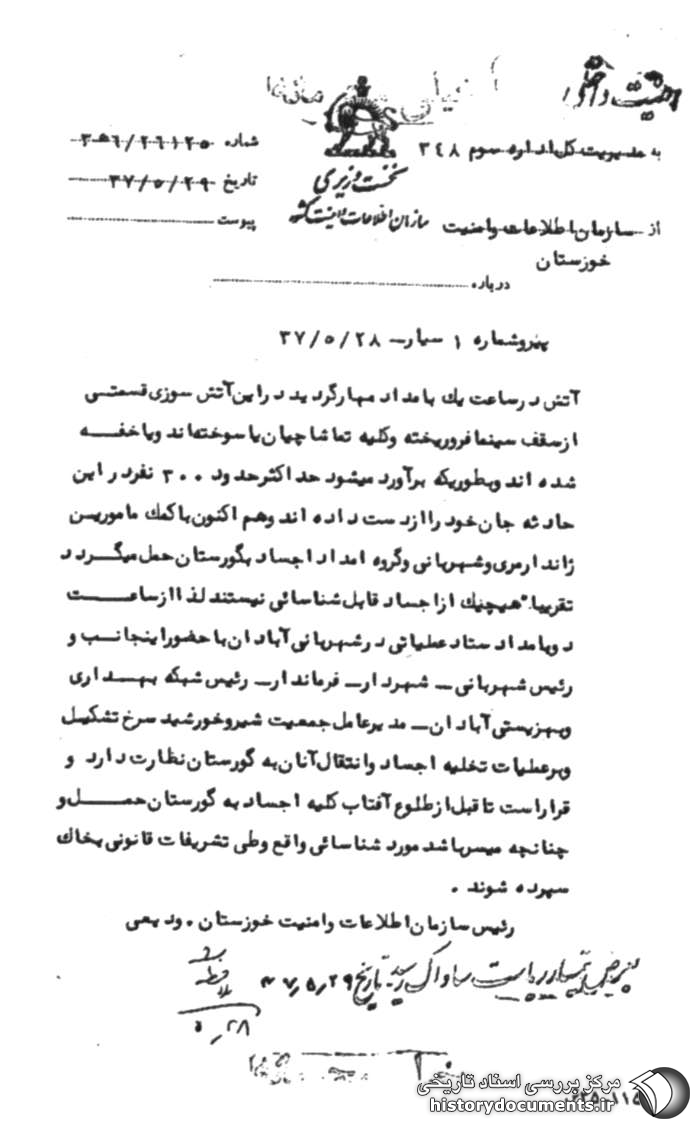 به مدیریت کل اداره سوم ۳۴۸
شماره ۳۵۶/۲۶۱۲۵
تاریخ ۳۷/۵/۲۹
پیوست
نخست وزیری
سازمان اطلاعات و امنیت کشور
از سازمان اطلاعات و امنیت
خوزستان
درباره
پیرو شماره ۱ سیار - ۳۷/۵/۲۸
آتش در ساعت یک بامداد مهار گردید در این آتش سوزی قسمتی
از سقف سینما فرو ریخته و کلیه تماشاچیان یا سوخته‌اند و یا خفه
شده اند و بطوریکه برآورد میشود حداکثر حدود ۳۰۰ نفر در این
حادثه جان خود را از دست داده اند و هم اکنون با کمک مامورین
ژاندارمری و شهربانی و گروه امداد اجساد بگورستان حمل میگردد
تقریبا" هیچیک از اجساد قابل شناسائی نیستند لذا از ساعت
دو بامداد ستاد عملیاتی در شهربانی آبادان با حضور اینجانب و
رئیس شهربانی - شهردار - فرماندار - رئیس شبکه بهداری
و بهزیستی آبادان - مدیر عامل جمعیت شیر و خورشید سرخ تشکیل
و بر عملیات تخلیه اجساد و انتقال آنان به گورستان نظارت دارد و
قرار است تا قبل از طلوع آفتاب کلیه اجساد به گورستان حمل و
چنانچه میسر باشد مورد شناسائی واقع و طی تشریفات قانونی بخاک
سپرده شوند .
رئیس سازمان اطلاعات و امنیت خوزستان . ودیعی
بعرض تیمسار ریاست ساواک رسید. تاریخ ۴۷/۵/۲۹
۲۸/۵
مرکز بررسی اسناد تاریخی
historydocuments.ir